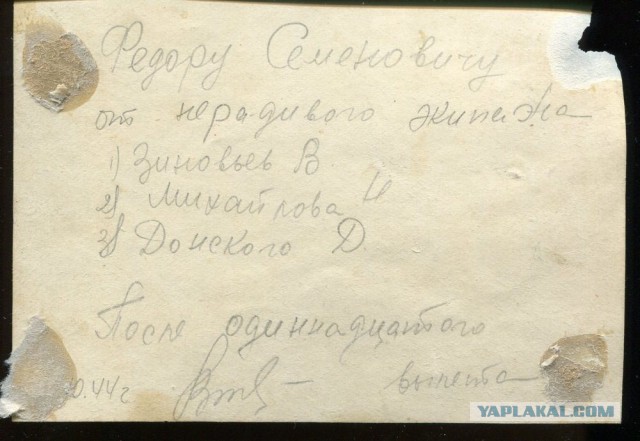 Федору Семеновичу
от нерадивого экипажа
1) Зиновьев В
2) Михайлова И
3) Донского Д.
После одиннадцатого
вылета
0.44г
YAPLAKAL.COM